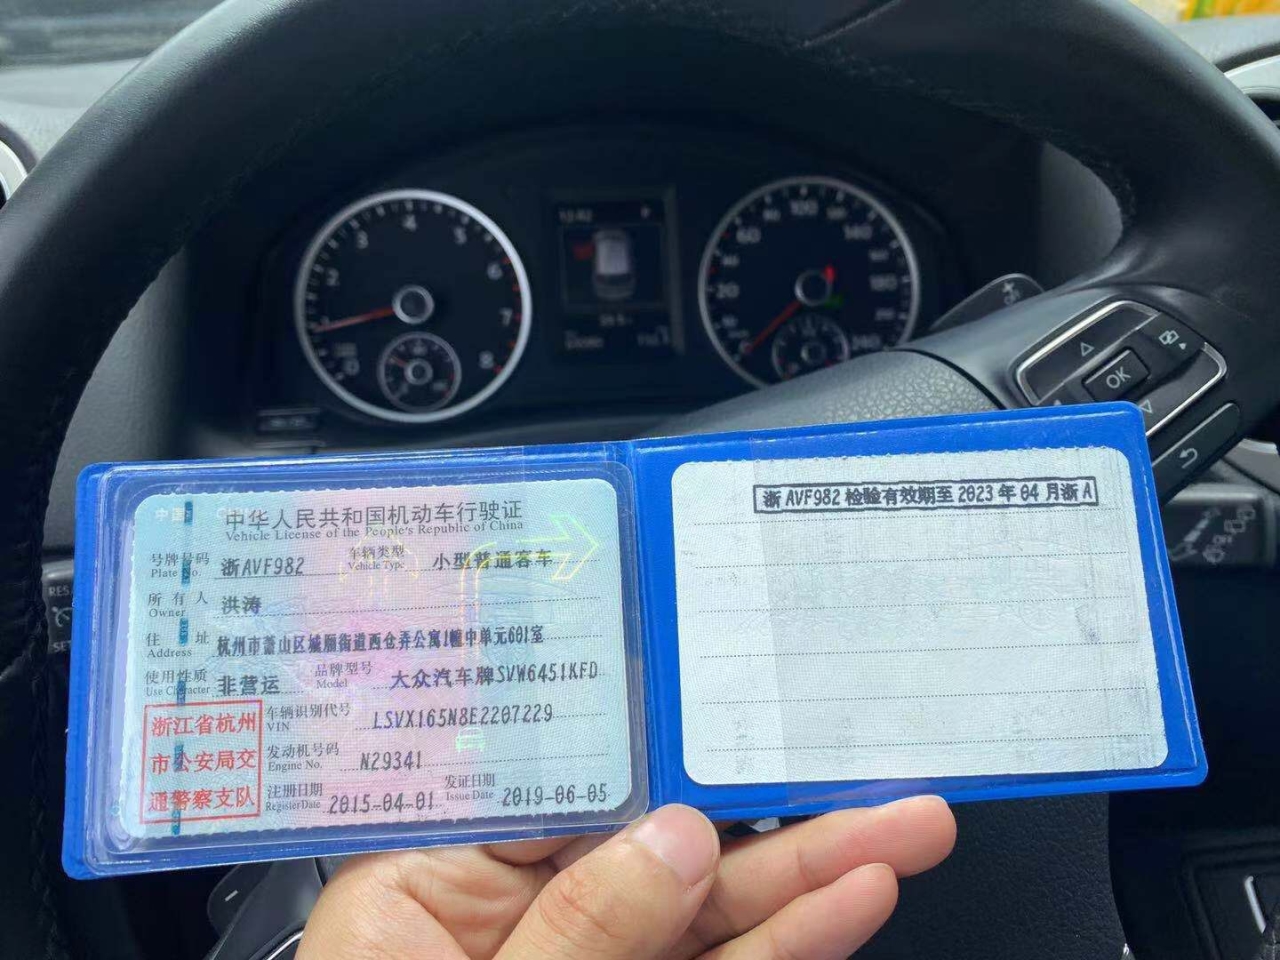 中华人民共和国机动车行驶证
Vehicle License of the People's Republic of China
号牌号码 浙AVF982 车辆类型 小型普通客车
Plate No. Vehicle Type
所有人 洪涛
Owner
住址 杭州市萧山区城厢街道西仓弄公寓1幢中单元601室
Address
使用性质 非营运 品牌型号 大众汽车牌SVW6451KFD
Use Character Model
浙江省杭州
市公安局交
通警察支队
车辆识别代号 LSVX165N8E2207229
VIN
发动机号码 N29341
Engine No.
注册日期 2015-04-01 发证日期 2019-06-05
Register Date Issue Date
浙AVF982检验有效期至2023年04月浙A
1 2 3 4 5 6 7 8
60 100 140 180
OK
RES